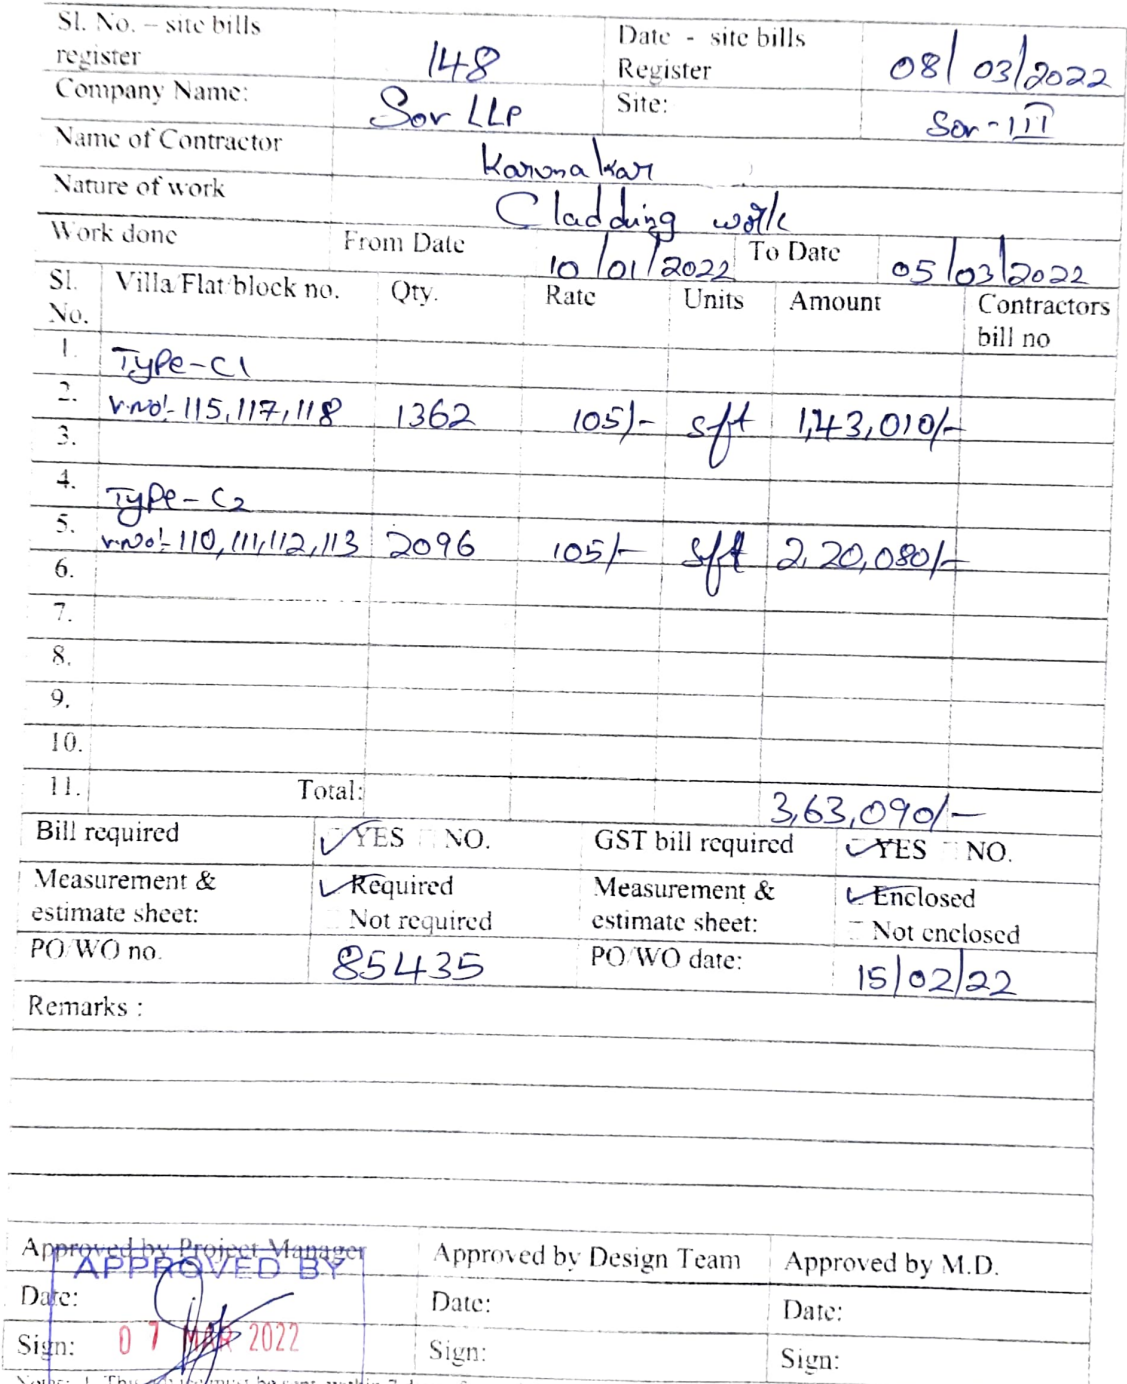 Sl. No. – site bills register 148 Date - site bills Register 08/03/2022
Company Name: Sov LLP Site: Sov-III
Name of Contractor Karunakar
Nature of work Cladding work
Work done From Date 10/01/2022 To Date 05/03/2022
Sl. No. Villa/Flat/block no. Qty. Rate Units Amount Contractors bill no
1. Type-C1
2. V.no:- 115,117,118 1362 105/- sft 1,43,010/-
3.
4. Type-C2
5. V.no:- 110,111,112,113 2096 105/- sft 2,20,080/-
6.
7.
8.
9.
10.
11. Total: 3,63,090/-
Bill required YES NO. GST bill required YES NO.
Measurement & estimate sheet: Required Not required Measurement & estimate sheet: Enclosed Not enclosed
PO/WO no. 85435 PO/WO date: 15/02/22
Remarks :
Approved by Project Manager Approved by Design Team Approved by M.D.
APPROVED BY
Date: Date: Date:
Sign: 07 MAR 2022 Sign: Sign: